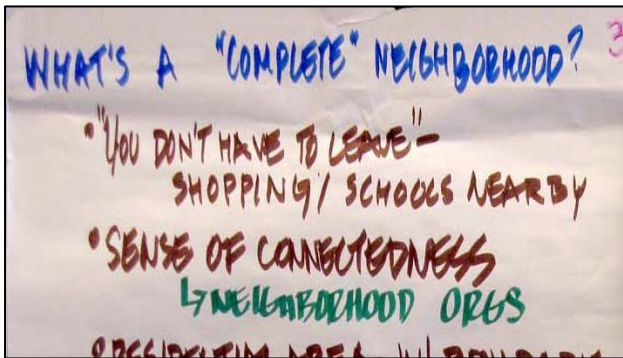 WHAT'S A "COMPLETE" NEIGHBORHOOD? 3
• "YOU DON'T HAVE TO LEAVE" –
SHOPPING / SCHOOLS NEARBY
• SENSE OF CONNECTEDNESS
↳ NEIGHBORHOOD ORGS